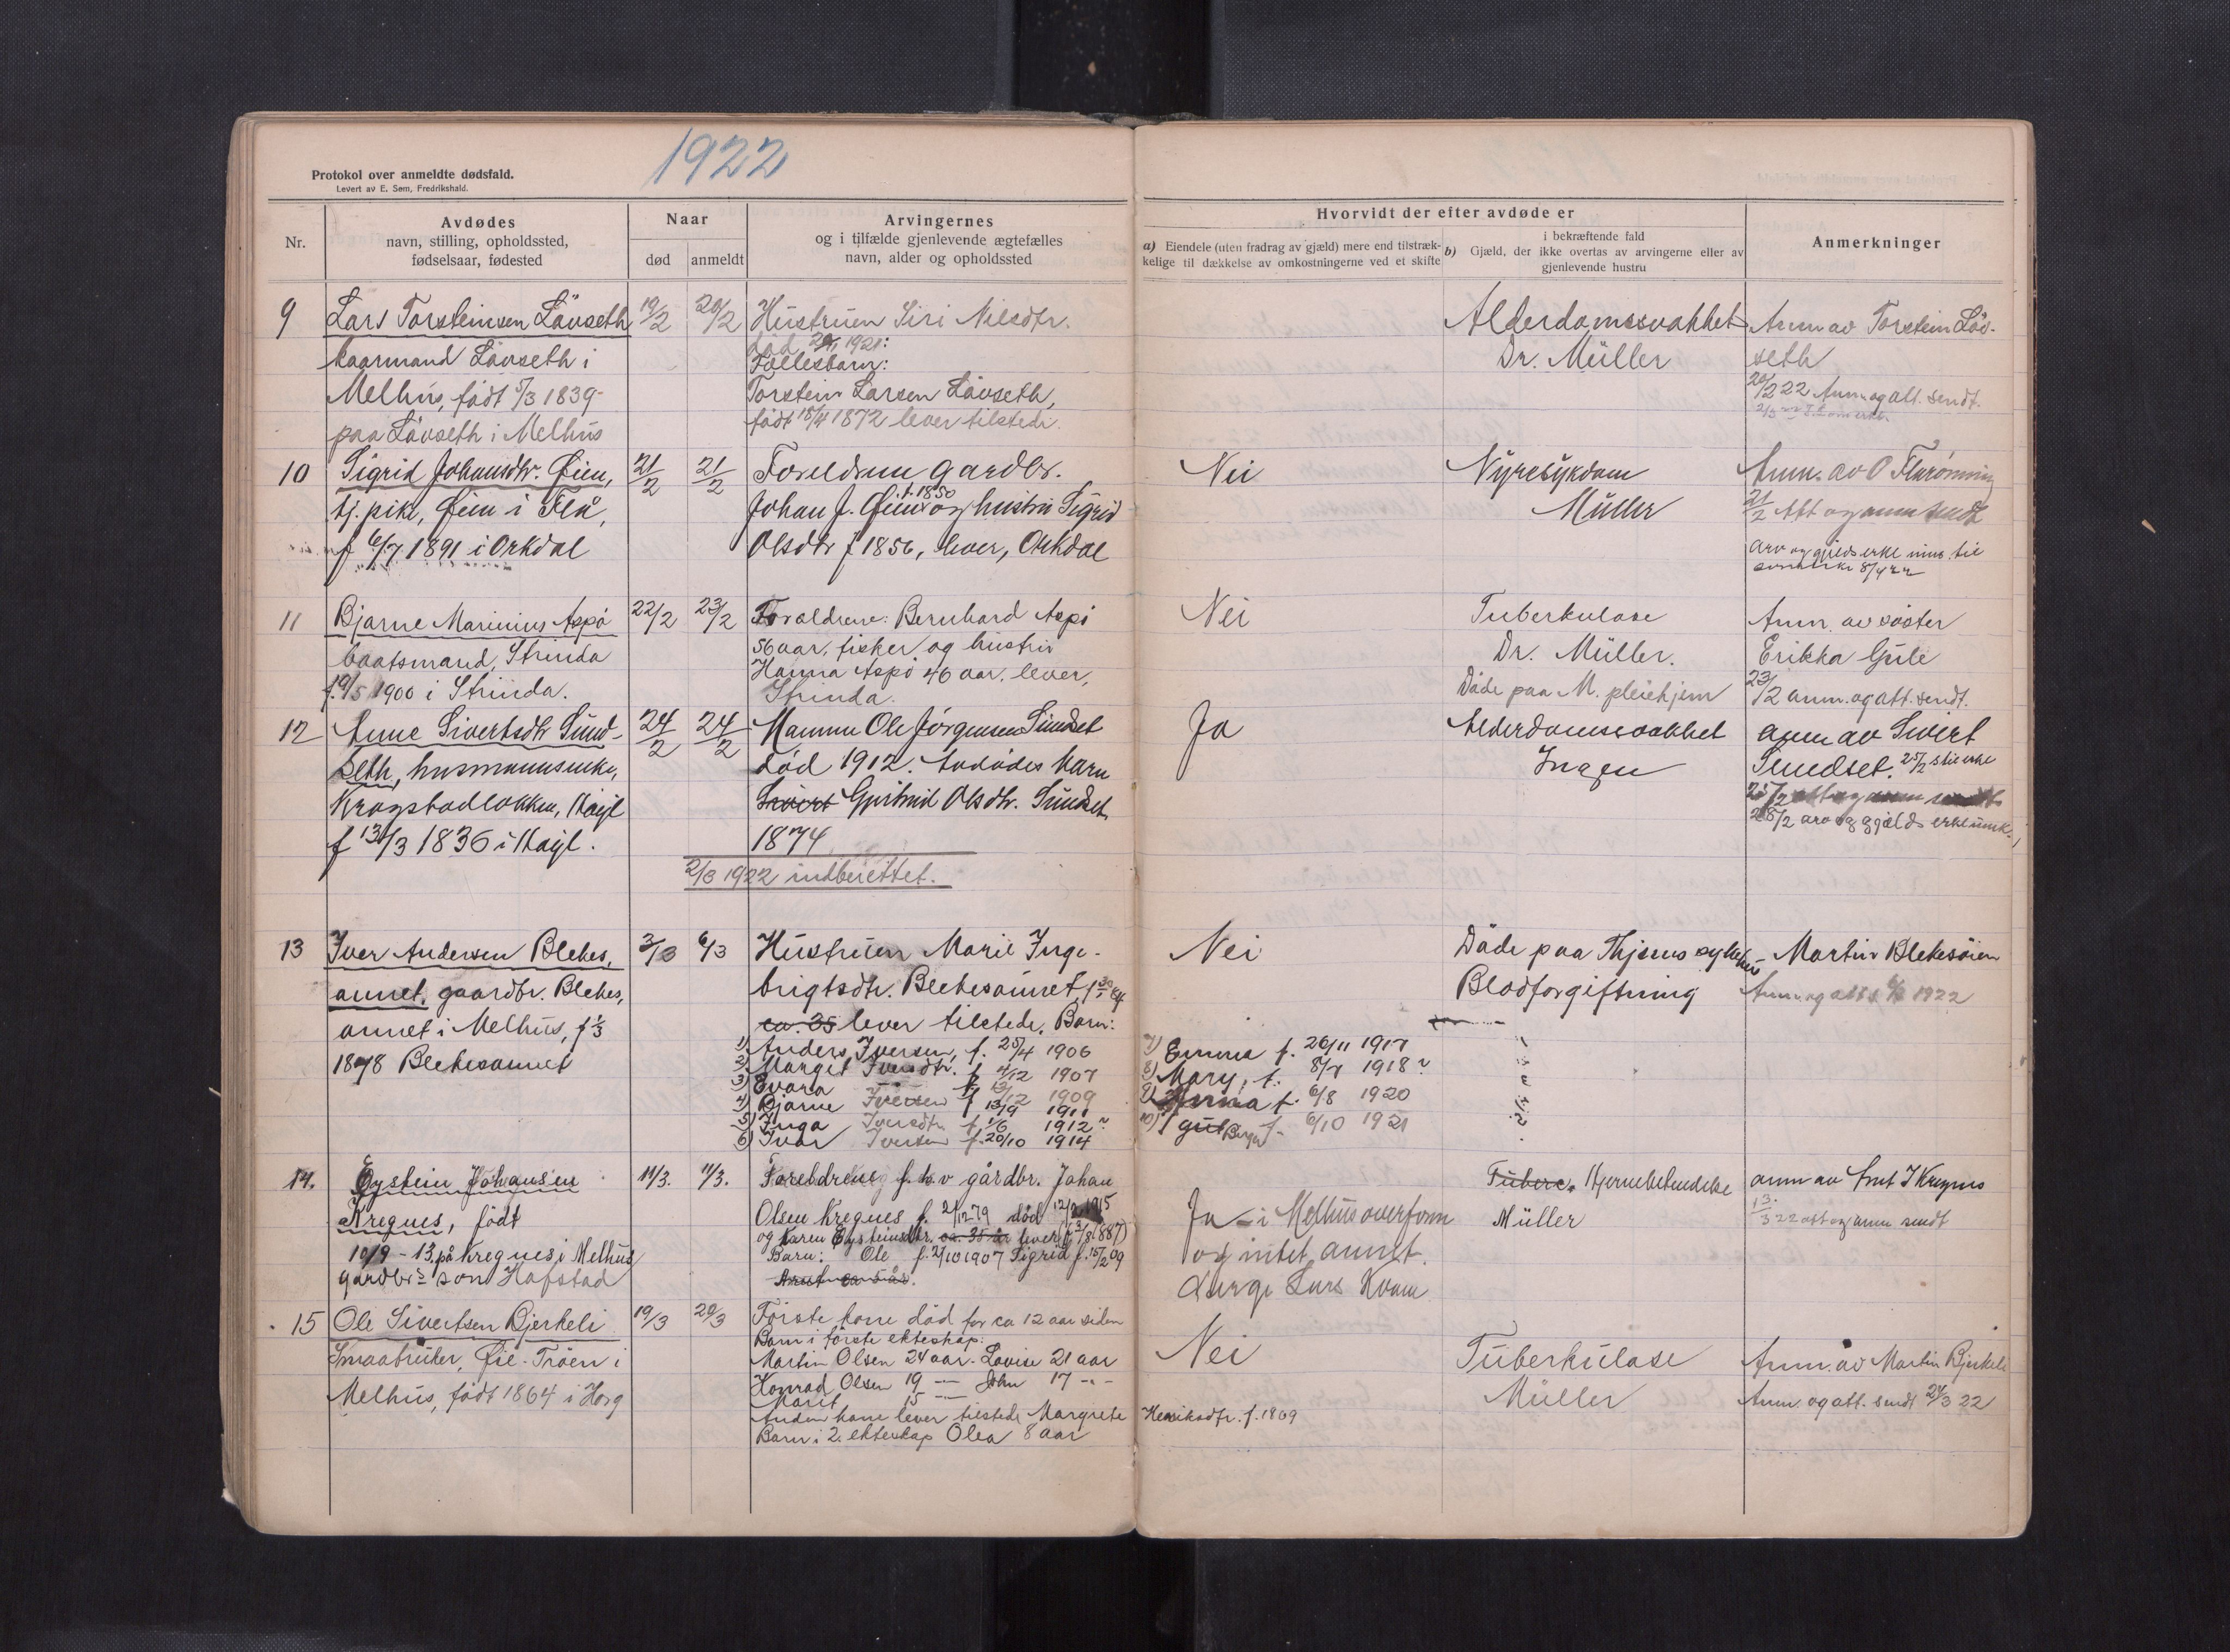 1922
Protokol over anmeldte dødsfald.
Levert av E. Sem, Fredrikshald.
Nr.
Avdødes
navn, stilling, opholdssted,
fødselsaar, fødested
Naar
død
anmeldt
Arvingernes
og i tilfælde gjenlevende ægtefælles
navn, alder og opholdssted
Hvorvidt der efter avdøde er
a) Eiendele (uten fradrag av gjæld) mere end tilstræk-
kelige til dækkelse av omkostningerne ved et skifte
i bekræftende fald
b) Gjæld, der ikke overtas av arvingerne eller av
gjenlevende hustru
Anmerkninger
9
Lars Torsteinsen Løvseth
kaarmand Løvseth i
Melhus, født 5/3 1839-
paa Løvseth i Melhus
19/2
20/2
Hustruen Siri Nilsdtr.
død 1921:
Fællesbarn:
Torstein Larsen Løvseth,
født 18/4 1872 lever tilstede.
Alderdomssvakhet
Dr. Müller
Anm av Torstein Löv-
seth
20/2 22 Anm. og att. sendt.
10
Sigrid Johansdtr. Øien,
tj. pike, Øien i Flå,
f 6/7 1891 i Orkdal
21/2
21/2
Foreldrene gardbr.
Johan J. Øien f. 1850 og hustru Sigrid
Olsdtr f 1856, lever, Orkdal
Nei
Nyresykdom
Müller
Anm. av O Flarønning
21/2 Att og anm sendt
arv og gjelds erkl
8/4 22
11
Bjarne Marinius Aspö
baatsmand, Strinda
f. 9/5 1900 i Strinda.
22/2
23/2
Foraldrene: Bernhard Aspö
56 aar, fisker og hustru
Hanna Aspö 46 aar, lever,
Strinda.
Nei
Tuberkulose
Dr. Müller.
Döde paa M. pleiehjem
Anm. av söster
Erikka Gule
23/2 anm. og att. sendt.
12
Anne Sivertsdtr Sund-
seth, husmannsenke,
Kragstadløkken, Høgl
f 13/3 1836 i Høgl.
24/2
24/2
Mannen Ole Jørgensen Sundset
død 1912. Avdødes barn
Sivert Gjertrud Olsdtr. Sundset
1874
2/3 1922 indberettet.
Ja
Alderdomssvakhet
Ingen
anm av Sivert
Sundset. 25/2
25/2 att og anm sendt
28/2 arv og gjælds erkl
13
Iver Andersen Blekes,
aunet, gaardbr. Blekes,
aunet i Melhus, f 1/3
1878 Blekesaunet
3/3
6/3
Hustruen Marie Inge-
brigtsdtr. Blekesaunet, f
ca. 35 lever tilstede. Barn:
1) Anders Iversen, f. 25/4 1906
2) Marget Iversdtr. f 4/12 1907
3) Evara f 13/12 1909
4) Bjarne Iversen f 13/9 1911
5) Inga Iversdtr. f. 1/6 1912
6) Ivar Iversen f. 20/10 1914
Nei
7) Emma f. 26/11 1917
8) Mary, f. 8/7 1918
9) Anna f. 6/8 1920
10) 1 gut Birger f- 6/10 1921
Döde paa Thjems sykehus
Blodforgiftning
Martin Blekesöien
Anm. og att s 6/3 1922
14.
Eystein Johansen
Kregnes, født
10/9 - 13 på Kregnes i Melhus
gardbrs søn Hofstad
11/3.
11/3.
Foreldrene f. h. v gårdbr. Johan
Olsen Kregnes f. 2/12 79 død 12/2 1915
og Karen Eysteinsdtr. ca. 35 år lever (f. 3/8 1887)
Barn: Ole f. 2/10 1907 Sigrid f. 15/2 09
Arnt ca 5 år.
Ja - i Melhus overform
og intet annet.
Verge Lars Kvam
Tuberc. Hjernebetendelse
Müller
anm av Arnt J Kregnes
13/3 22 att og anm sendt
15
Ole Sivertsen Bjerkeli
Smaabruker, Øie-Trøen i
Melhus, født 1864 i Horg
19/3
20/3
Förste kone död for ca 12 aar siden
Barn i förste ekteskap:
Martin Olsen 24 aar. Lovise 21 aar
Konrad Olsen 19 — John 17 -"-
Marit 15 —
Anden kone lever tilstede Margrete Henriksdtr. f. 1869
Barn i 2. ekteskap Olea 8 aar
Nei
Tuberkulose
Müller
Anm. av Martin Bjerkeli
Anm. og att. sendt 24/3 22